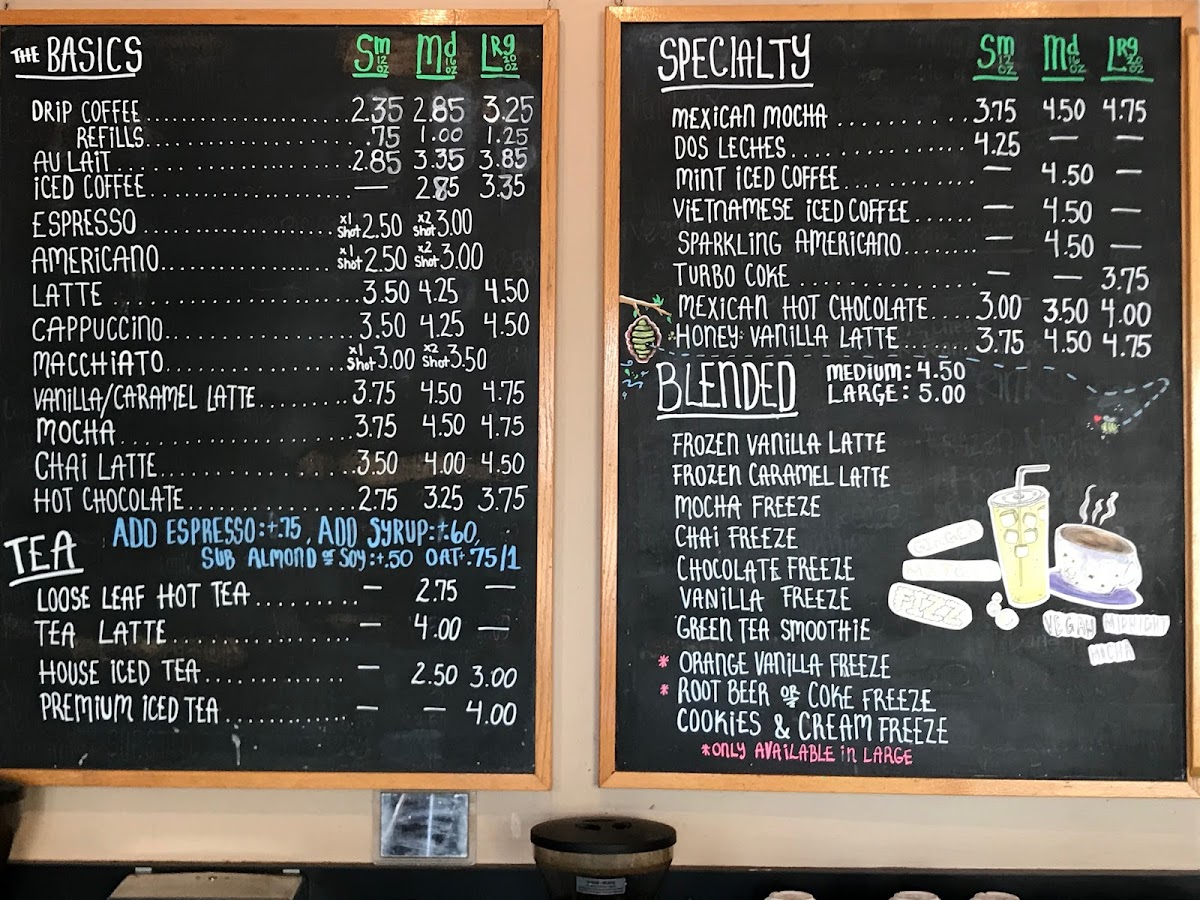 THE BASICS Sm 12 oz Md 16 oz LRg 20 oz
DRIP COFFEE 2.35 2.85 3.25
REFILLS .75 1.00 1.25
AU LAIT 2.85 3.35 3.85
iCED COFFEE — 2.85 3.35
ESPRESSO x1 Shot 2.50 x2 Shot 3.00
AMERICANO x1 Shot 2.50 x2 Shot 3.00
LATTE 3.50 4.25 4.50
CAPPUCCINO 3.50 4.25 4.50
MACCHIATO x1 Shot 3.00 x2 Shot 3.50
VANILLA/CARAMEL LATTE 3.75 4.50 4.75
MOCHA 3.75 4.50 4.75
CHAI LATTE 3.50 4.00 4.50
HOT CHOCOLATE 2.75 3.25 3.75
ADD ESPRESSO:+.75, ADD SYRUP:+.60,
SUB ALMOND OR SOY:+.50 OAT+.75/1
TEA
LOOSE LEAF HOT TEA — 2.75 —
TEA LATTE — 4.00 —
HOUSE ICED TEA — 2.50 3.00
PREMIUM ICED TEA — — 4.00
SPECIALTY Sm 12 oz Md 16 oz LRg 20 oz
MEXICAN MOCHA 3.75 4.50 4.75
DOS LECHES 4.25 — —
MINT ICED COFFEE — 4.50 —
VIETNAMESE ICED COFFEE — 4.50 —
SPARKLING AMERICANO — 4.50 —
TURBO COKE — — 3.75
MEXICAN HOT CHOCOLATE 3.00 3.50 4.00
HONEY VANILLA LATTE 3.75 4.50 4.75
BLENDED MEDIUM: 4.50
LARGE: 5.00
FROZEN VANILLA LATTE
FROZEN CARAMEL LATTE
MOCHA FREEZE
CHAI FREEZE
CHOCOLATE FREEZE
VANILLA FREEZE
GREEN TEA SMOOTHIE
* ORANGE VANILLA FREEZE
* ROOT BEER OR COKE FREEZE
COOKIES & CREAM FREEZE
*ONLY AVAILABLE in LARGE
FIZZ
VEGAN MIDNIGHT
MOCHA